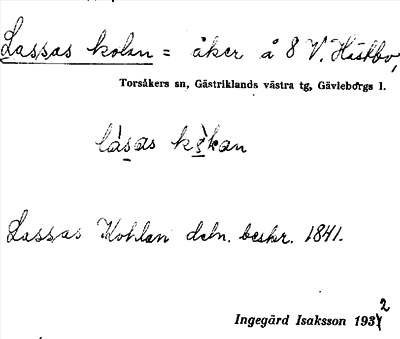 Lassas kolan = åker å 8 V. Hästbo,
Torsåkers sn, Gästriklands västra tg, Gävleborgs l.
låsas kan
Lassas Kohlan deln. beskr. 1841.
Ingegärd Isaksson 1932